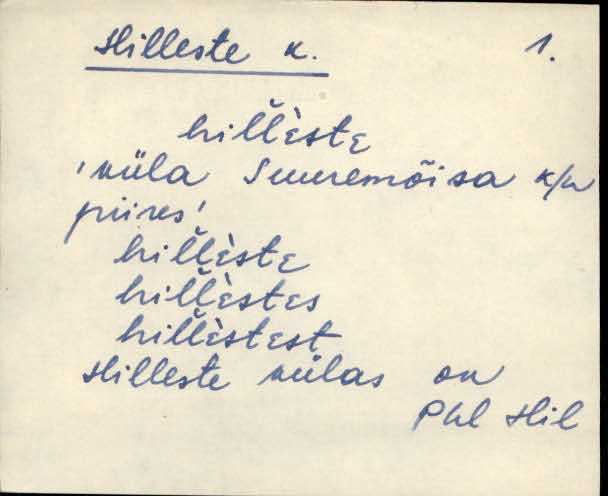 Hilleste k. 1.
hil̆l̆èstɛ
'küla Suuremõisa k/n
piires'
hil̆l̆èstɛ
hil̆l̆èstɛs
hil̆l̆èstɛst
Hilleste külas on
Phl Hil